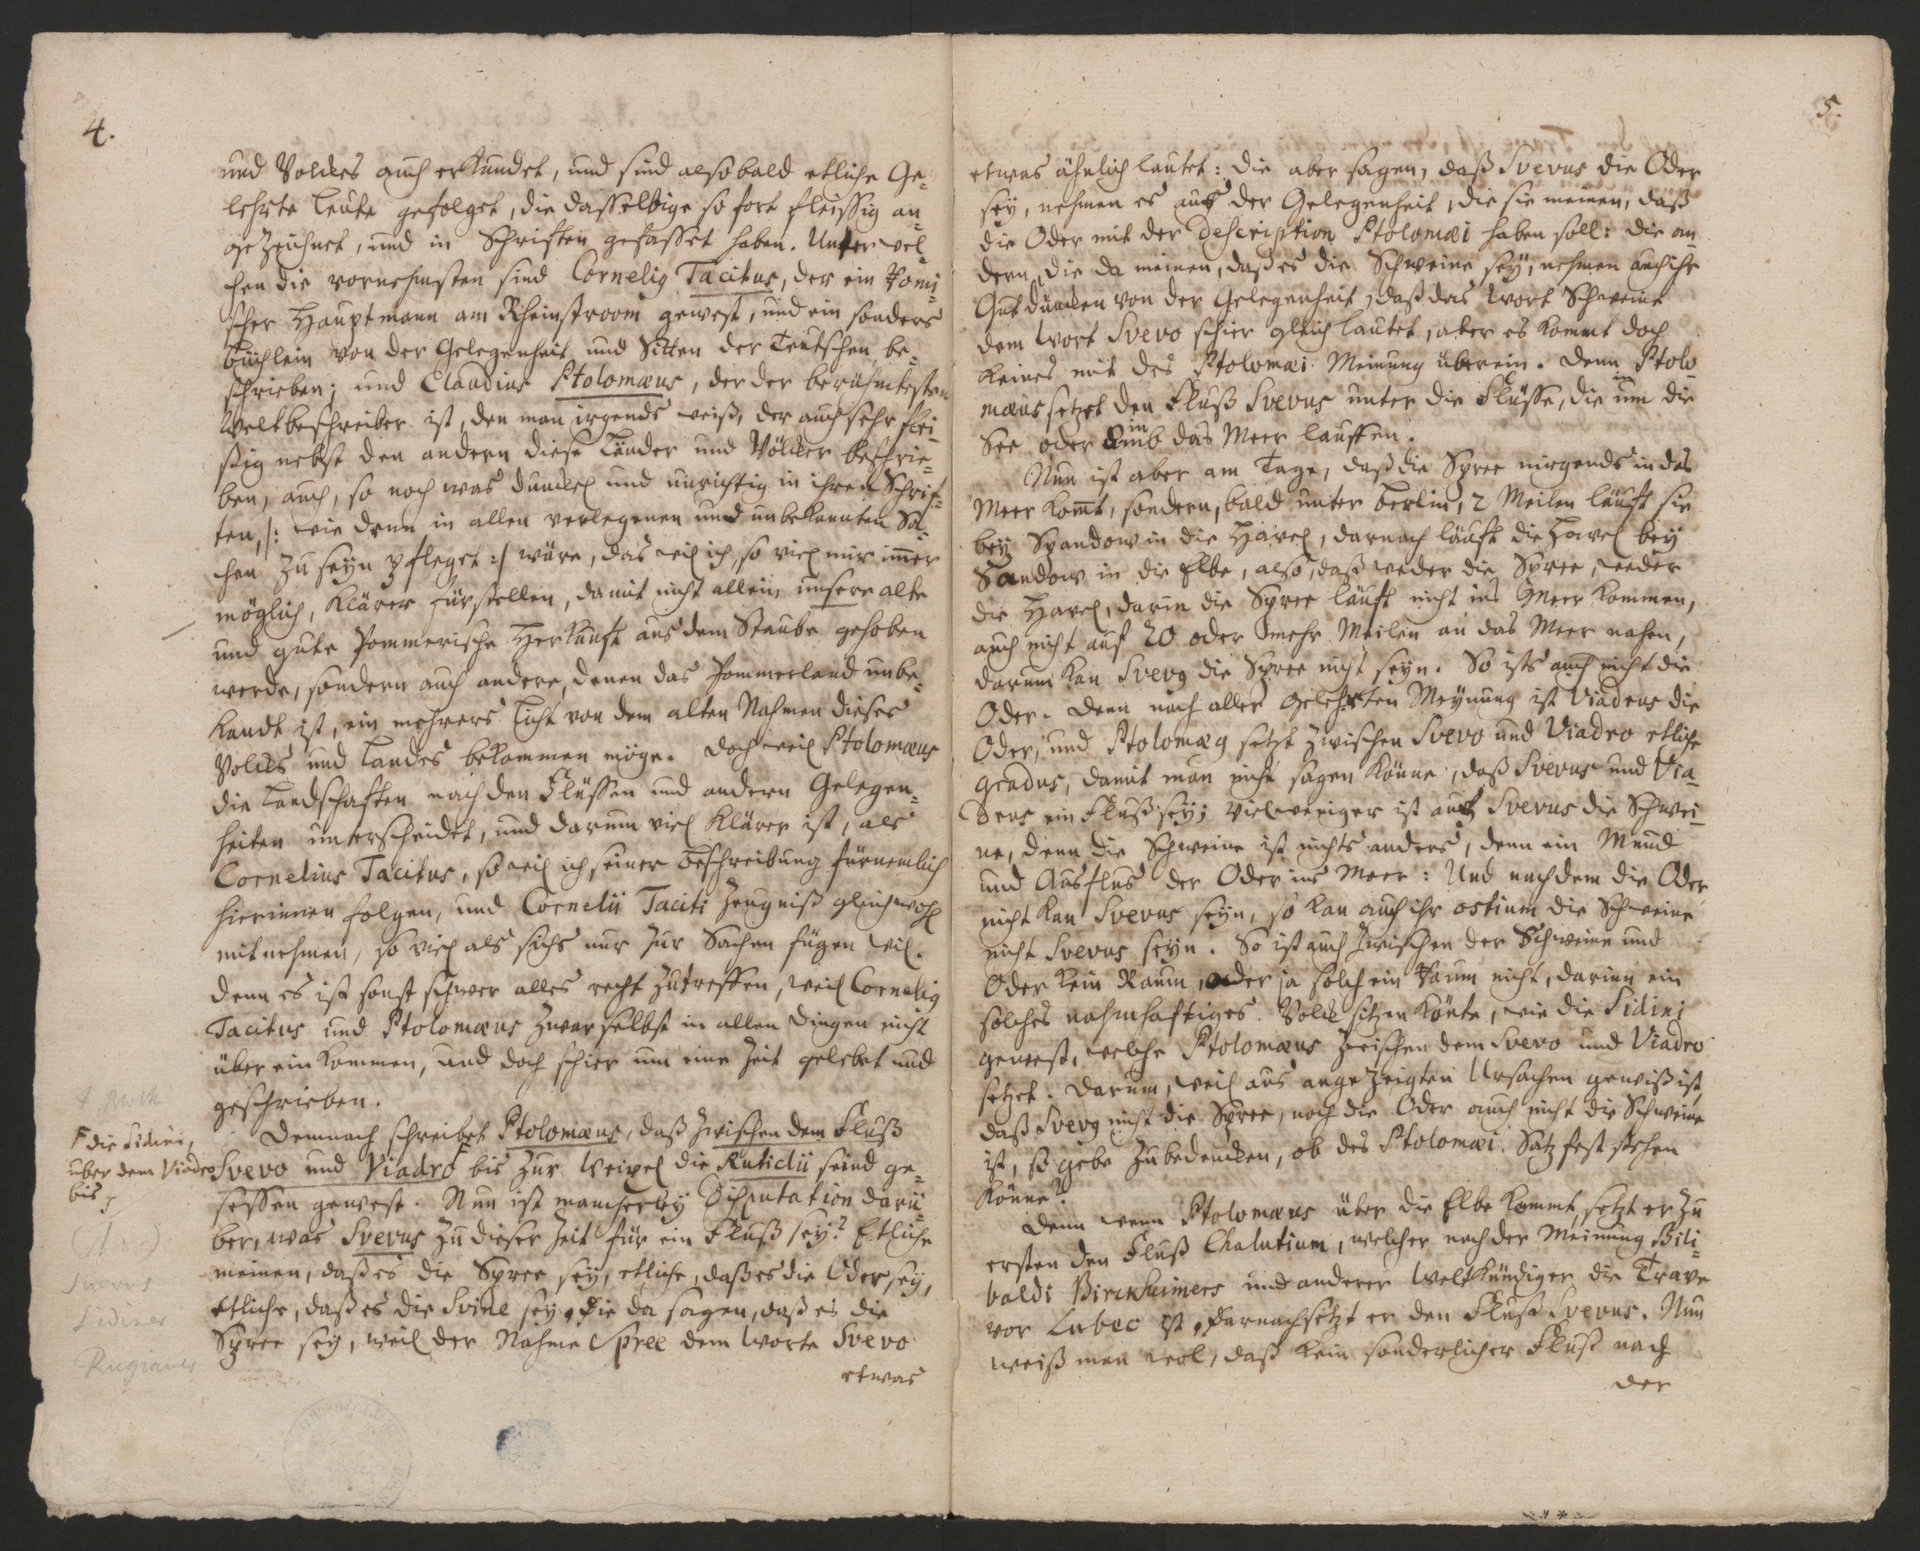 4.
und Volckes auch erkundet, und sind alsobald etliche Ge-
lehrte Leute gefolget, die dasselbige so fort fleissig an-
gezeichnet, und in Schriften gefasset haben. Unter wel-
chen die vornehmsten sind Cornelig Tacitus, der ein Romi-
scher Hauptmann am Rheinstroom gewest, und ein sonders
büchlein von der Gelegenheit und Sitten der Teutschen be-
schrieben; und Claudius Ptolomæus, der der berühmtesten
Weltbeschreiber ist, den man irgends weiß, der auch sehr flei-
ßig nebst den andern diese Länder und Völcker beschrie-
ben, auch, so noch was dunckel und unrichtig in ihren Schrif-
ten, /: wie denn in allen verlegenen und unbekannten Sa-
chen zu seyn pfleget :/ wäre, das wil ich, so viel mir im̄er
möglich, klärer fürstellen, damit nicht allein unsere alte
und gute Pommerische Herkunft aus dem Staube gehoben
werde, sondern auch andere, denen das Pommerland unbe-
kandt ist, ein mehrers Licht von dem alten Nahmen dieses
Volcks und Landes bekommen möge. Doch weil Ptolomæus
die Landschafften nach den Flüssen und andern Gelegen-
heiten unterscheidet, und darum viel klärer ist, als
Cornelius Tacitus, so wil ich seiner beschreibung fürnemlich
hierinnen folgen, und Cornelii Taciti Zeugniß gleichwohl
mitnehmen, so viel als sichs nur zur Sachen fügen wil.
Denn es ist sonst schwer alles recht zutreffen, weil Cornelig
Tacitus und Ptolomæus zwar selbst in allen Dingen nicht
über ein kommen, und doch schier um eine Zeit gelebet und
geschrieben.
Demnach schreibet Ptolomæus, daß zwischen dem Fluß
Svevo und Viadro F bis zur Weixel die Ruticlii seind ge-
F die Sidini,
über dem Viadro
bis
sessen gewest. Nun ist mancherley Disputation darü-
ber, was Svevus zu dieser Zeit für ein Fluß sey? Etliche
meinen, daß es die Spree sey, etliche, daß es die Oder sey,
etliche, daß es die Svine sey. Die da sagen, daß es die
Spree sey, weil der Nahme Spree dem Worte Svevo
Suevus
Sidiner
Rugianer
etwas
5.
etwas ähnlich lautet: die aber sagen, daß Svevus die Oder
sey, nehmen es auch der Gelegenheit, die sie meinen, daß
die Oder mit der Description Ptolomæi haben soll: die an-
dern, die da meinen, daß es die Schweine sey, nehmen auch ihr
Gutdüncken von der Gelegenheit, daß das Wort Schweine
dem Wort Svevo schier gleich lautet, aber es kommt doch
keines mit des Ptolomæi Meinung überein. Denn Ptolo-
mæus setzet den Fluß Svevus unter die Flüsse, die um die
See oder in das Meer lauffen.
Nun ist aber am Tage, daß die Spree nirgends in das
Meer kom̄t, sondern, bald unter Berlin, 2 Meilen läufft sie
bey Spandow in die Havel, darnach läuft die Havel bey
Sandow in die Elbe, also, daß weder die Spree, weder
die Havel, darin die Spree läuft nicht ins Meer kommen,
auch nicht auf 20 oder mehr Meilen an das Meer nahen,
darum kan Svevg die Spree nicht seyn. So ists auch nicht die
Oder. Denn nach aller Gelehrten Meynung ist Viadrus die
Oder, und Ptolomæg setzt zwischen Svevo und Viadro etliche
gradus, damit man nicht sagen könne, daß Svevus und Via-
drus ein Fluß sey; vielweniger ist auch Svevus die Schwei-
ne, denn die Schweine ist nichts anders, denn ein Mund
und Ausflus der Oder ins Meer: Und nachdem die Oder
nicht kan Svevus seyn, so kan auch ihr ostium die Schweine
nicht Svevus seyn. So ist auch zwischen der Schweine und
Oder kein Raum, oder ja solch ein Raum nicht, darinn ein
solches nahmhaftiges Volck sitzen könte, wie die Sidini
gewest, welche Ptolomæus zwischen dem Svevo und Viadro
setzet. Darum, weil aus angezeigten Ursachen gewiß ist,
daß Svevg nicht die Spree, noch die Oder auch nicht die Schweine
ist, so gebe zu bedencken, ob des Ptolomæi Satz fest stehen
könne?
Denn wenn Ptolomæus über die Elbe kommt, setzt er zu
ersten den Fluß Chalutium, welcher nach der Meinung Bili-
baldi Birckheimers und anderer Weltkündiger die Trave
vor Lubec ist, darnach setzt er den Fluß Svevus. Nun
weiß man wol, daß kein sonderlicher Fluß nach
der